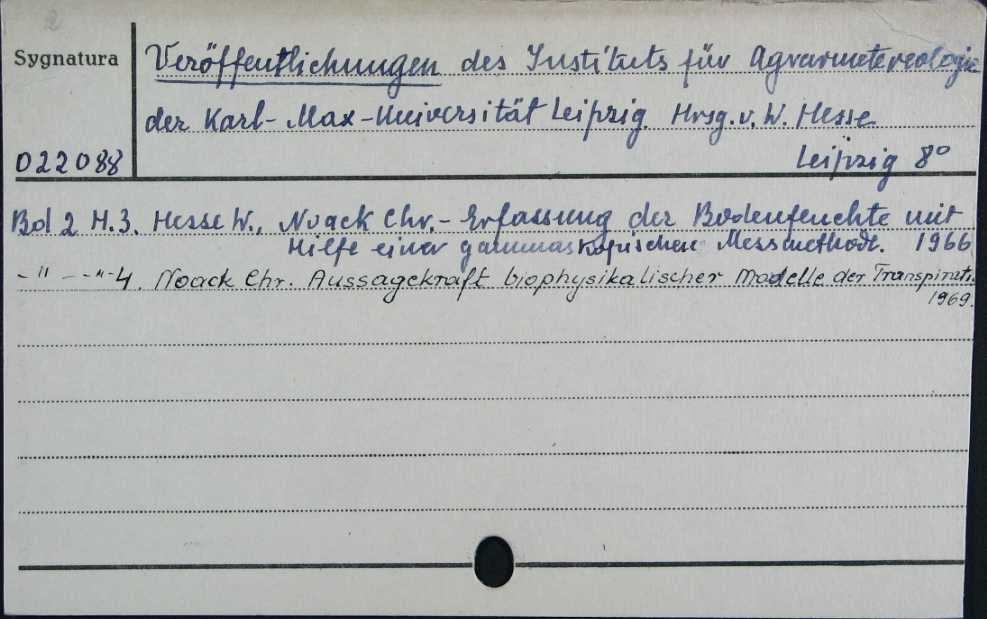 2
Sygnatura
Veröffentlichungen des Instituts für Agrarmetereologie
der Karl-Max-Universität Leipzig Hrsg. v. W. Hesse
022088
Leipzig 8°
Bd 2 H.3. Hesse W., Noack Chr. - Erfassung der Bodenfeuchte mit
Hilfe einer gammaskopischen Messmethode. 1966
-"- -"- 4. Noack Chr. Aussagekraft biophysikalischer Modelle der Transpirati.
1969.